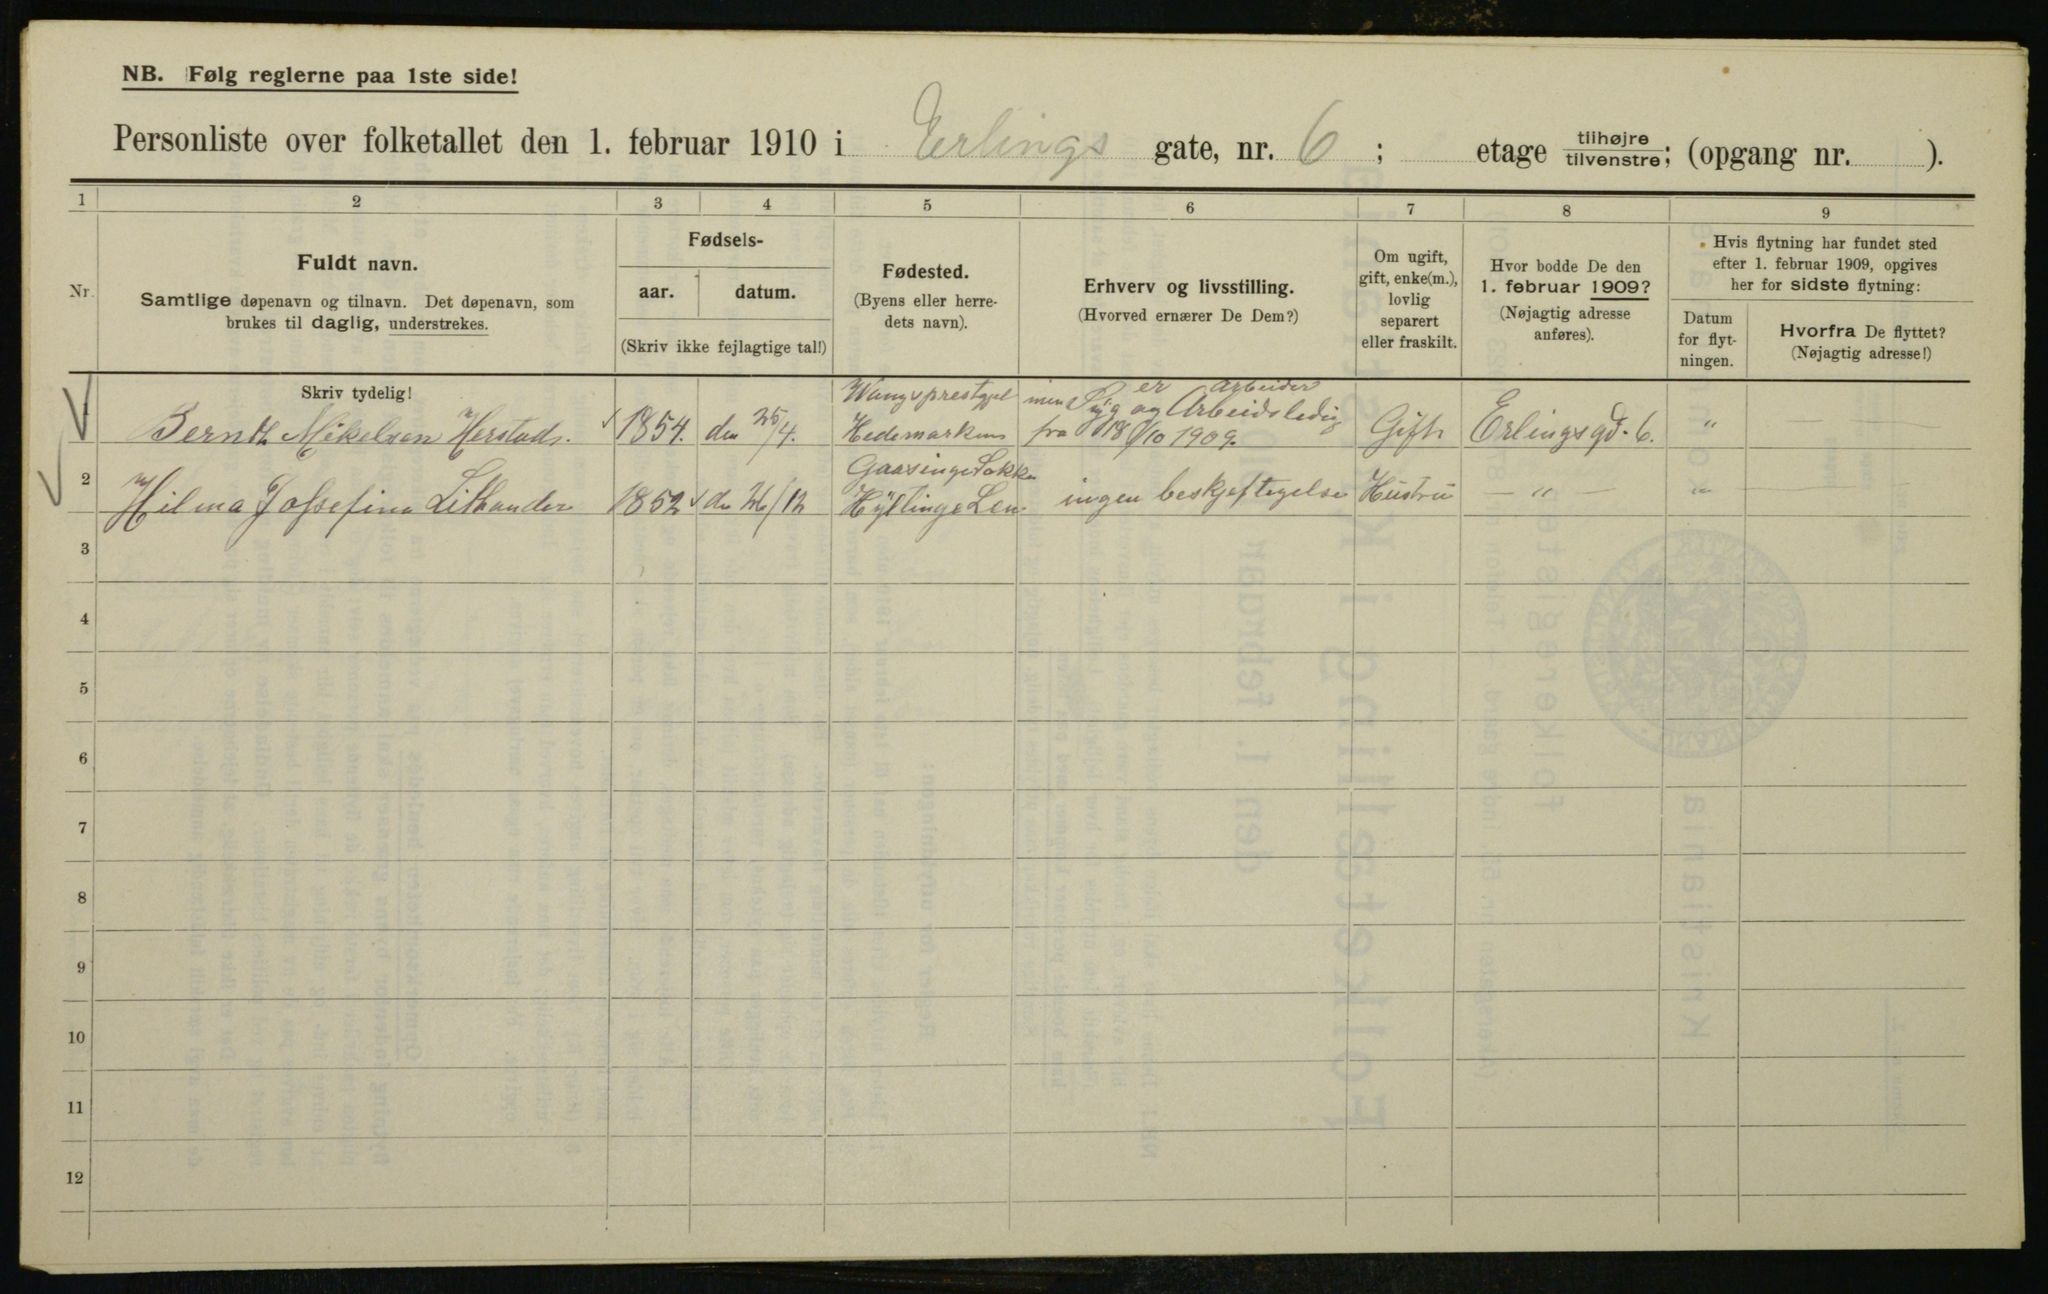 NB. Følg reglerne paa 1ste side!
Personliste over folketallet den 1. februar 1910 i Erlings gate, nr. 6 ; etage tilhøjre tilvenstre; (opgang nr. ).
1 2 3 4 5 6 7 8 9
Nr.
Fuldt navn.
Samtlige døpenavn og tilnavn. Det døpenavn, som
brukes til daglig, understrekes.
Fødsels-
aar. datum.
(Skriv ikke fejlagtige tal!)
Fødested.
(Byens eller herre-
dets navn).
Erhverv og livsstilling.
(Hvorved ernærer De Dem?)
Om ugift,
gift, enke(m.),
lovlig
separert
eller fraskilt.
Hvor bodde De den
1. februar 1909?
(Nøjagtig adresse
anføres).
Hvis flytning har fundet sted
efter 1. februar 1909, opgives
her for sidste flytning:
Datum
for flyt-
ningen.
Hvorfra De flyttet?
(Nøjagtig adresse!)
Skriv tydelig!
1 Bernth Mikelsen Herstad. 1854. den 25/4. Wangsprestgjel Hedemarken er arbeider men Syg og Arbeidsledig fra 18/10 1909. Gift Erlingsgd. 6. "
2 Hilma Jossefina Lithander 1852 den 26/12 Gaasinge Sokken Hyltinge Len ingen beskjeftigelse Hustru — " — "
3
4
5
6
7
8
9
10
11
12